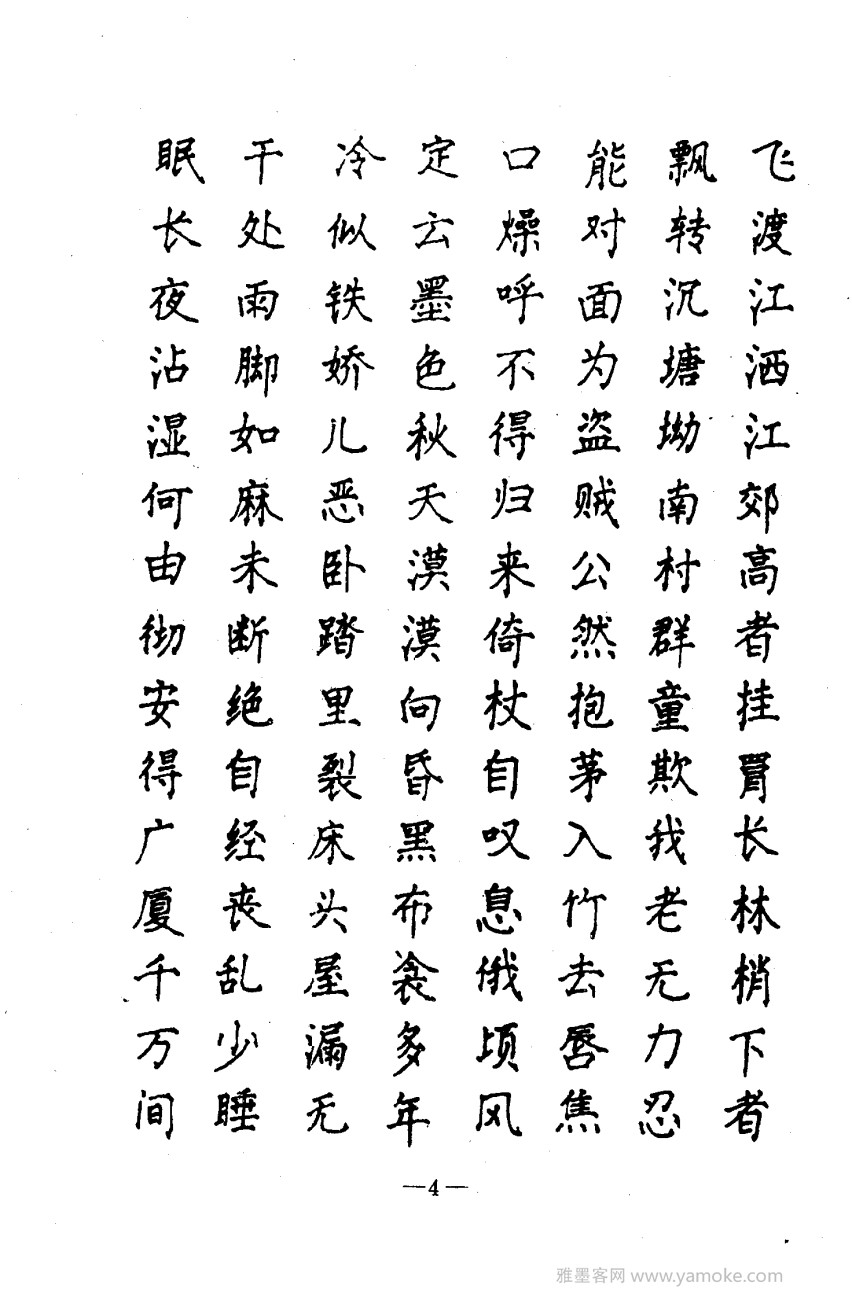 飞渡江洒江郊高者挂罥长林梢下者
飘转沉塘坳南村群童欺我老无力忍
能对面为盗贼公然抱茅入竹去唇焦
口燥呼不得归来倚杖自叹息俄顷风
定云墨色秋天漠漠向昏黑布衾多年
冷似铁娇儿恶卧踏里裂床头屋漏无
干处雨脚如麻未断绝自经丧乱少睡
眠长夜沾湿何由彻安得广厦千万间
—4—
雅墨客网 www.yamoke.com